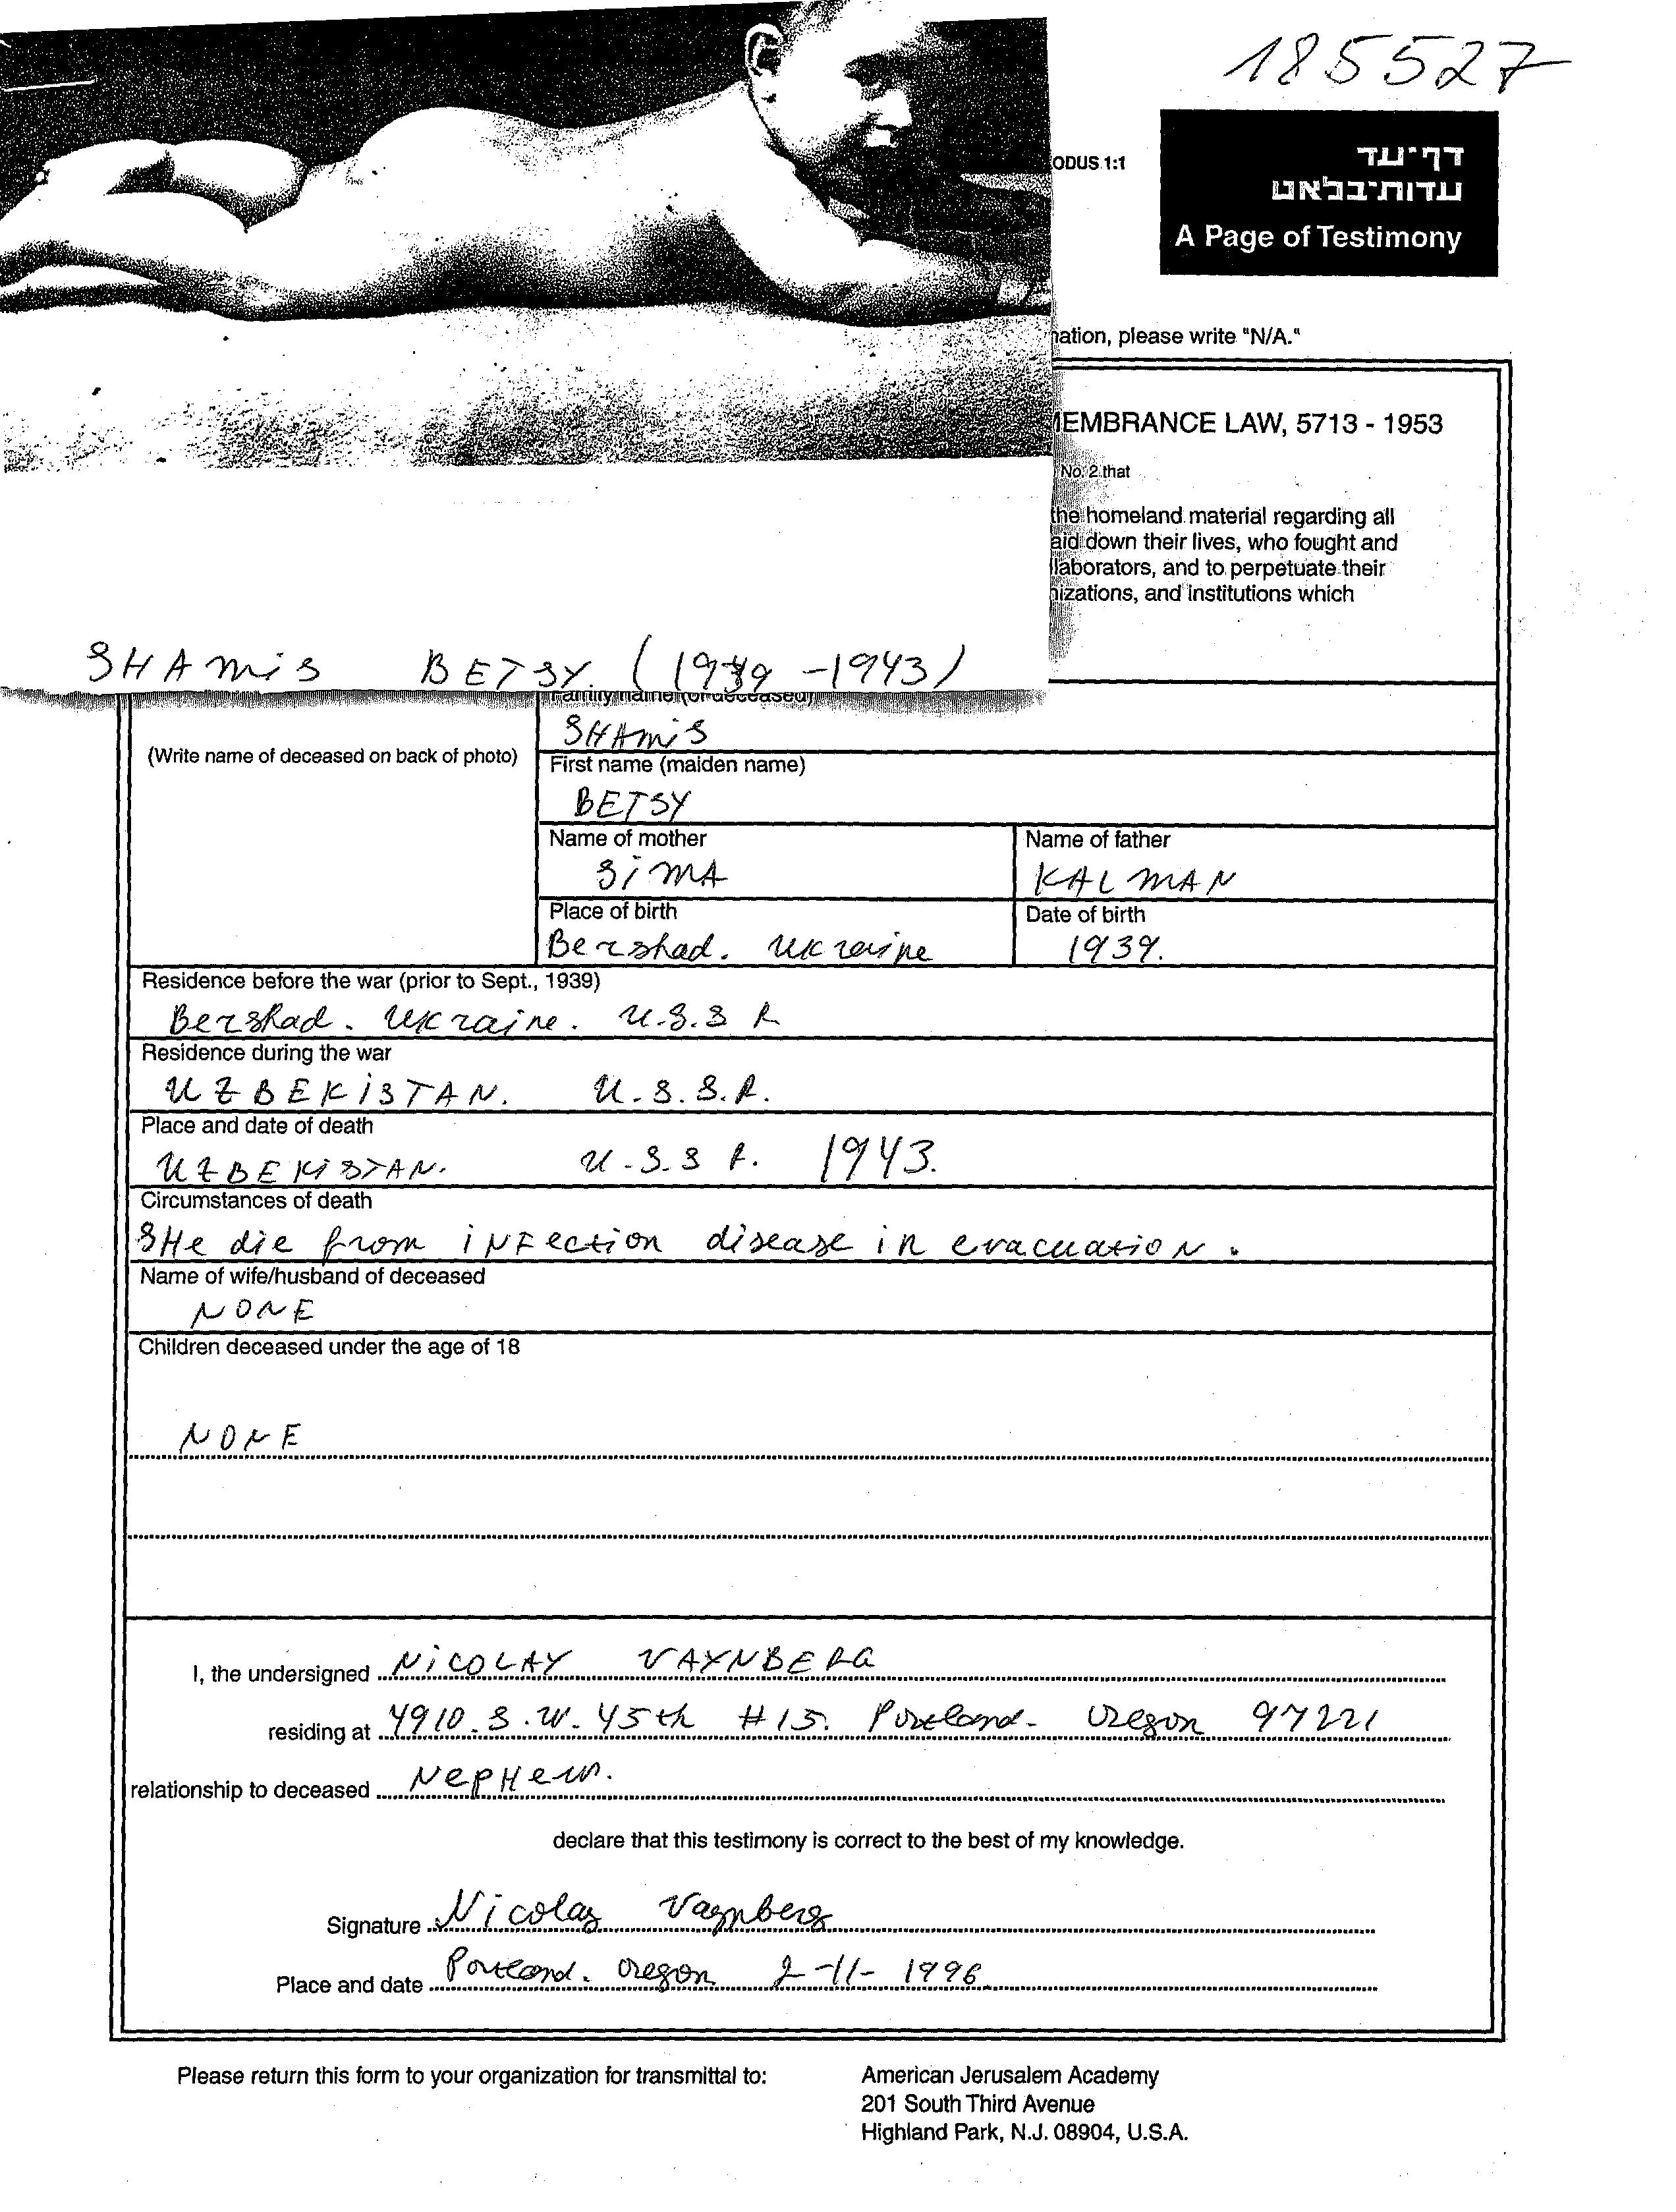 185527
ODUS 1:1
דף־עד
עדות־בלאט
A Page of Testimony
ation, please write "N/A."
EMBRANCE LAW, 5713 - 1953
No. 2 that
the homeland material regarding all
aid down their lives, who fought and
laborators, and to perpetuate their
nizations, and institutions which
SHAMIS BETSY. (1939 - 1943)
Family name (of deceased)
SHAMIS
(Write name of deceased on back of photo)
First name (maiden name)
BETSY
Name of mother Name of father
SIMA KALMAN
Place of birth Date of birth
Bershad. Ukraine 1939.
Residence before the war (prior to Sept., 1939)
Bershad. Ukraine. U.S.S R
Residence during the war
UZBEKISTAN. U.S.S.R.
Place and date of death
UZBEKISTAN. U.S.S R. 1943.
Circumstances of death
SHe die from iNFection disease in evacuatioN.
Name of wife/husband of deceased
NONE
Children deceased under the age of 18
NONE
I, the undersigned NICOLAY VAYNBERG
residing at 4910. S.W. 45th #15. Portland - Oregon 97221
relationship to deceased NepHew.
declare that this testimony is correct to the best of my knowledge.
Signature Nicolay Vaynberg
Place and date Portland. Oregon 2-11-1996
Please return this form to your organization for transmittal to:
American Jerusalem Academy
201 South Third Avenue
Highland Park, N.J. 08904, U.S.A.